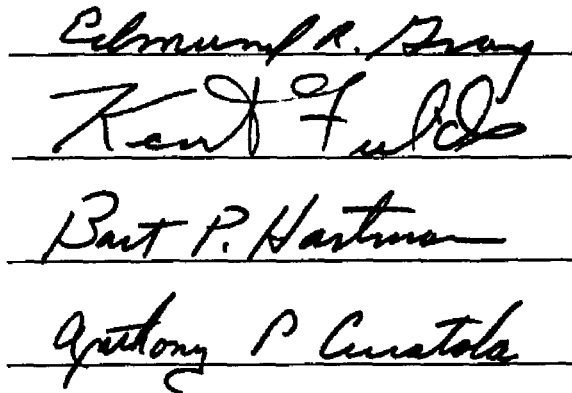 Edmund R. Gray
Kent Fields
Bart P. Hartman
Anthony P Curatola